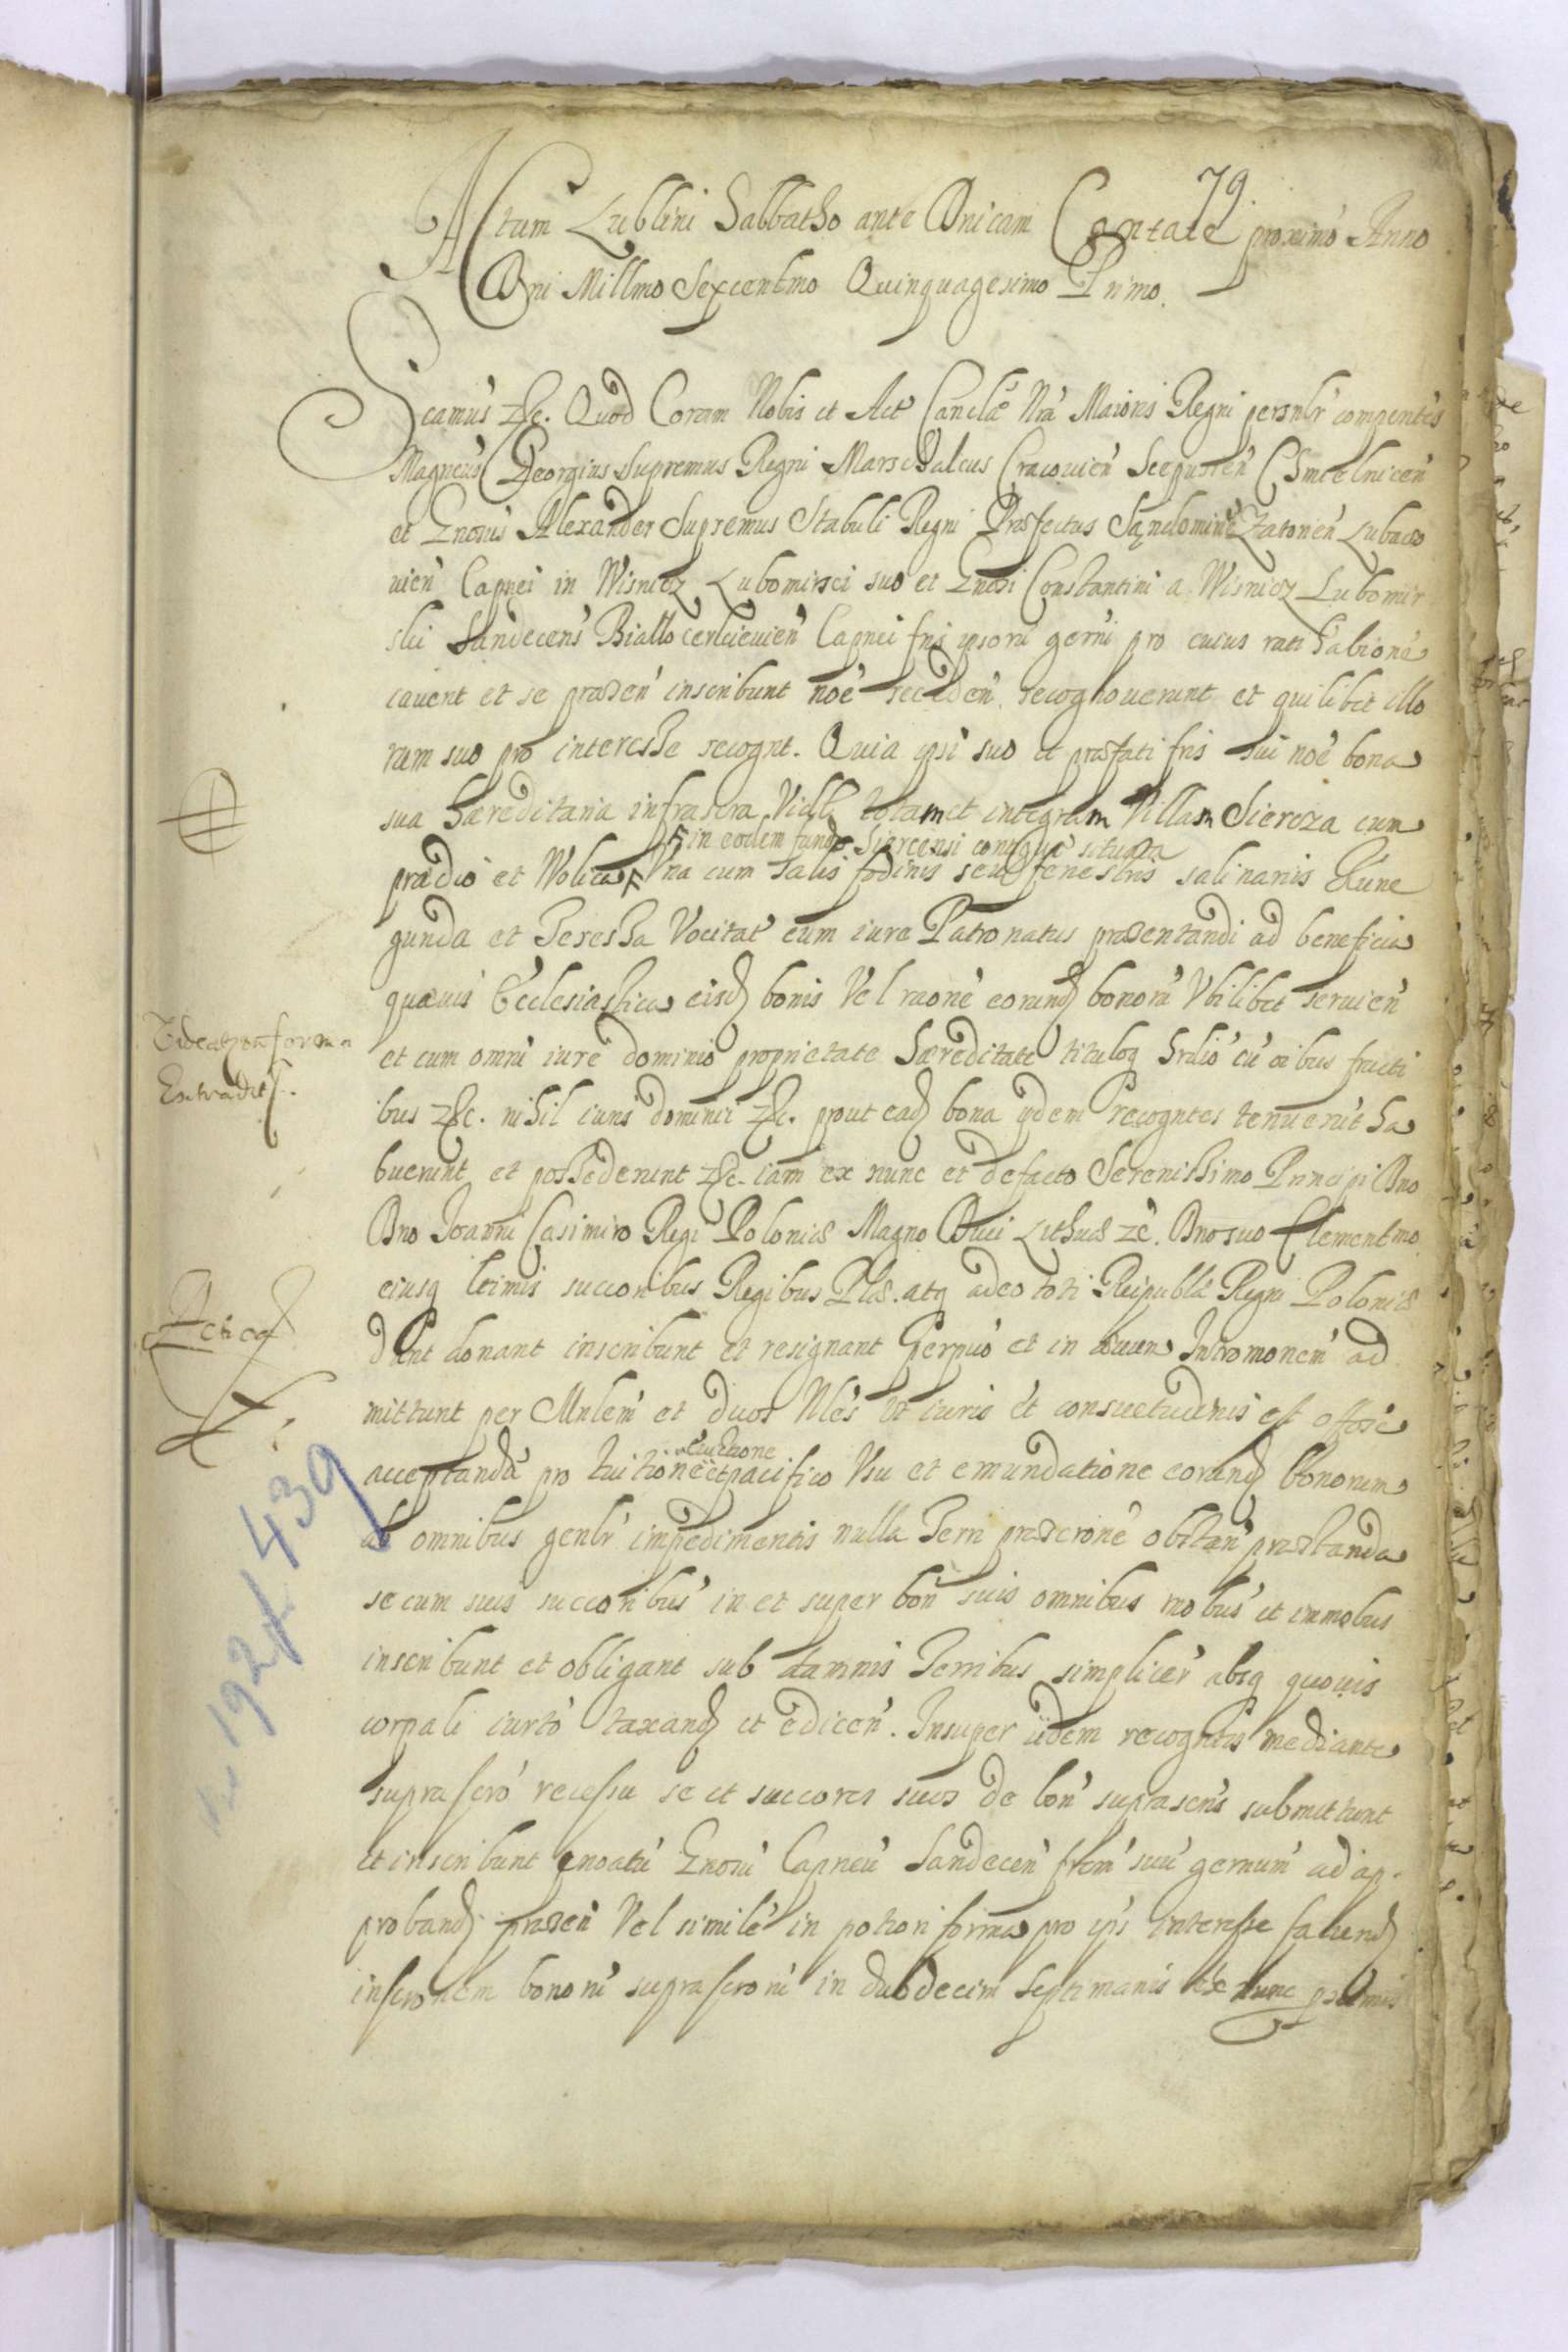 79.
Actum Lublini Sabbatho ante Dnicam Cantate proximo Anno
Dni Millmo Sexcentmo Quinquagesimo Primo.
Scamus &c. Quod Coram Nobis et Act Canclae Nra Maioris Regni persnlr compentes
Magncus Georgius Supremus Regni Marschalcus Cracouien Scepusien Chmielnicen
et Gnosus Alexander Supremus Stabuli Regni Praefectus Sandomirie Zatorien Lubaczo
uien Capnei in Wisnicz Lubomirsci suo et Gnosi Constantini a Wisnicz Lubomir
ski Sandecens Biallocerkieuien Capnei fris ipsoru gerni pro cuius rati habione
cauent et se praesen inscribunt noe receden recognouerunt et quilibet illo
rum suo pro interesse recognt. Quia ipsi suo et praefati fris sui noe bona
sua haereditaria infrascra Vidlt totam et integram Villam Siercza cum
in eodem fundo Siercensi contigue situata
praedio et Wolica Vna cum salis fodinis seu fenestris salinariis Kune
gunda et Teressa Vocitat cum iure Patronatus praesentandi ad beneficia
quaeuis Ecclesiastica eisd bonis Vel raone eorund bonoru Vbilibet seruien
et cum omni iure dominio proprietate haereditate tituloq hrilio cu oibus fructi
bus &c. nihil iuris dominii &c. prout ead bona ijdem recogntes tenuerut ha
buerunt et possederunt &c. iam ex nunc et defacto Serenissimo Principi Dno
Dno Joanni Casimiro Regi Poloniae Magno Duci Lithuae &c. Dno suo Clementmo
eiusq ltimis succoribus Regibus Plae. atq adeo toti Reipublae Regni Poloniae
dant donant inscribunt et resignant Perpuo et in Intromonem ad
mittunt per Mnlem et duos Nles vt iuris et consuetudinis est offose
euictione
acceptanda pro tuitione et pacifico Vsu et emundatione eorund bonorum
ab omnibus genlr impedimentis nulla Terri praescrone obstan praestanda
se cum suis succoribus in et super bon suis omnibus mobus et immobus
inscribunt et obligant sub damnis Terribus simplicer absq quouis
corpali iurto taxand et edicen. Insuper iidem recogntes mediante
suprascro recessu se et succores suos de bon suprascris submittunt
et inscribunt Gnosu Capneu Sandecen frem suu gernum ad ap-
proband praesen Vel simile in potiori forma pro ips interesse faciend
inscronem bonoru suprascroru in duodecim septimanis ex nunc proximis
Videatpotiforma
Extradit.
Petica